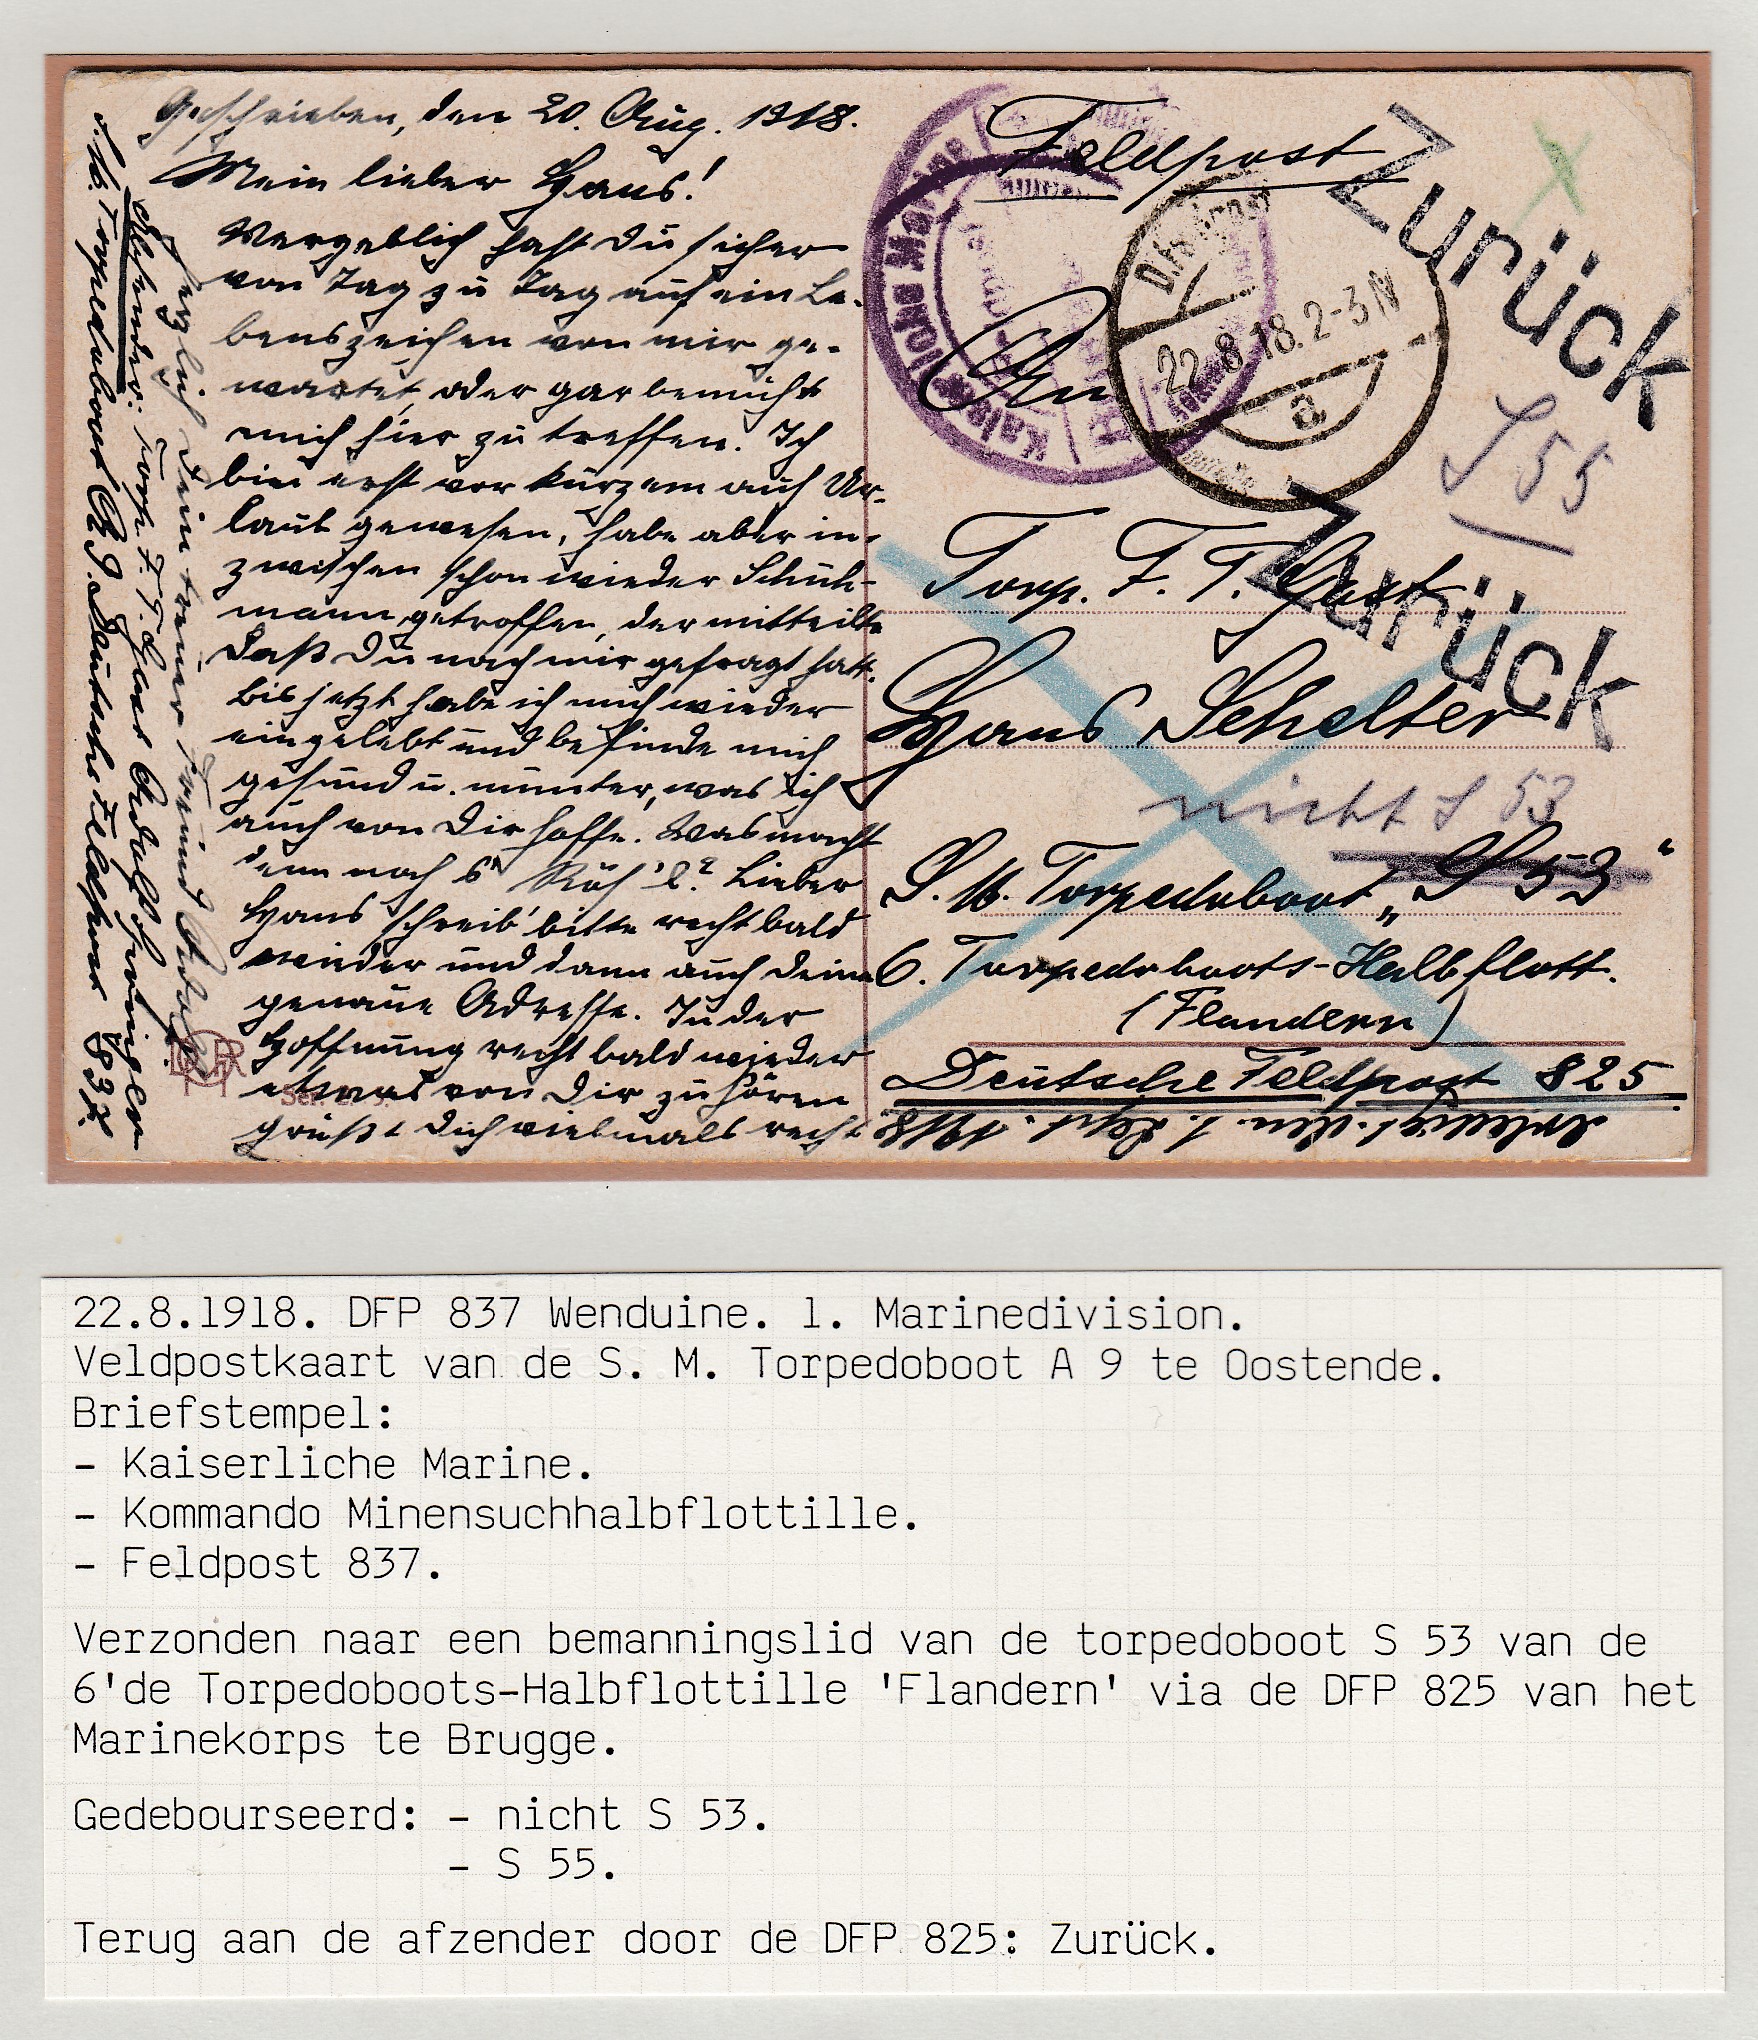 Geschrieben, den 20. Aug. 1918.
Mein lieber Hans!
Vergeblich hast Du sicher
von Tag zu Tag auf ein Le-
benszeichen von mir ge-
wartet, oder gar bemüht
mich hier zu treffen. Ich
bin erst vor kurzem auf Ur-
laub gewesen, habe aber in-
zwischen schon wieder Schuh-
mann getroffen, der mitteilte
daß Du nach mir gefragt hatt.
Bis jetzt habe ich mich wieder
eingelebt und befinde mich
gesund u. munter, was ich
auch von Dir hoffe. Was macht
denn noch Lieber
Hans schreib' bitte recht bald
wieder und dann auch Deine
genaue Adresse. In der
Hoffnung recht bald wieder
etwas von Dir zu hören
grüßt Dich vielmals recht
herzlich Dein treuer Freund
Absender: Torp. F. T. Gast
S. M. Torpedoboot A 9. Deutsche Feldpost 837.
Feldpost
Kaiserliche Marine
22.8.18.2-3N
a
Zurück
S 55
An
Torp. F. T. Gast
Zurück
Hans Schelter
nicht S 53
S. M. Torpedoboot „S 53“
6. Torpedoboots-Halbflott.
(Flandern)
Deutsche Feldpost 825
Erledigt. den 1. Sept. 1918
22.8.1918. DFP 837 Wenduine. 1. Marinedivision.
Veldpostkaart van de S. M. Torpedoboot A 9 te Oostende.
Briefstempel:
- Kaiserliche Marine.
- Kommando Minensuchhalbflottille.
- Feldpost 837.
Verzonden naar een bemanningslid van de torpedoboot S 53 van de
6'de Torpedoboots-Halbflottille 'Flandern' via de DFP 825 van het
Marinekorps te Brugge.
Gedebourseerd: - nicht S 53.
- S 55.
Terug aan de afzender door de DFP 825: Zurück.